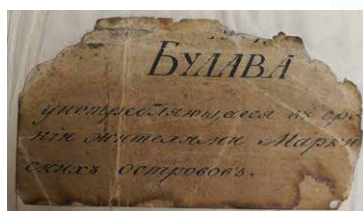 БУЛАВА
употребляющаеся въ сра
нiи жителями Марки
скихъ острововъ.